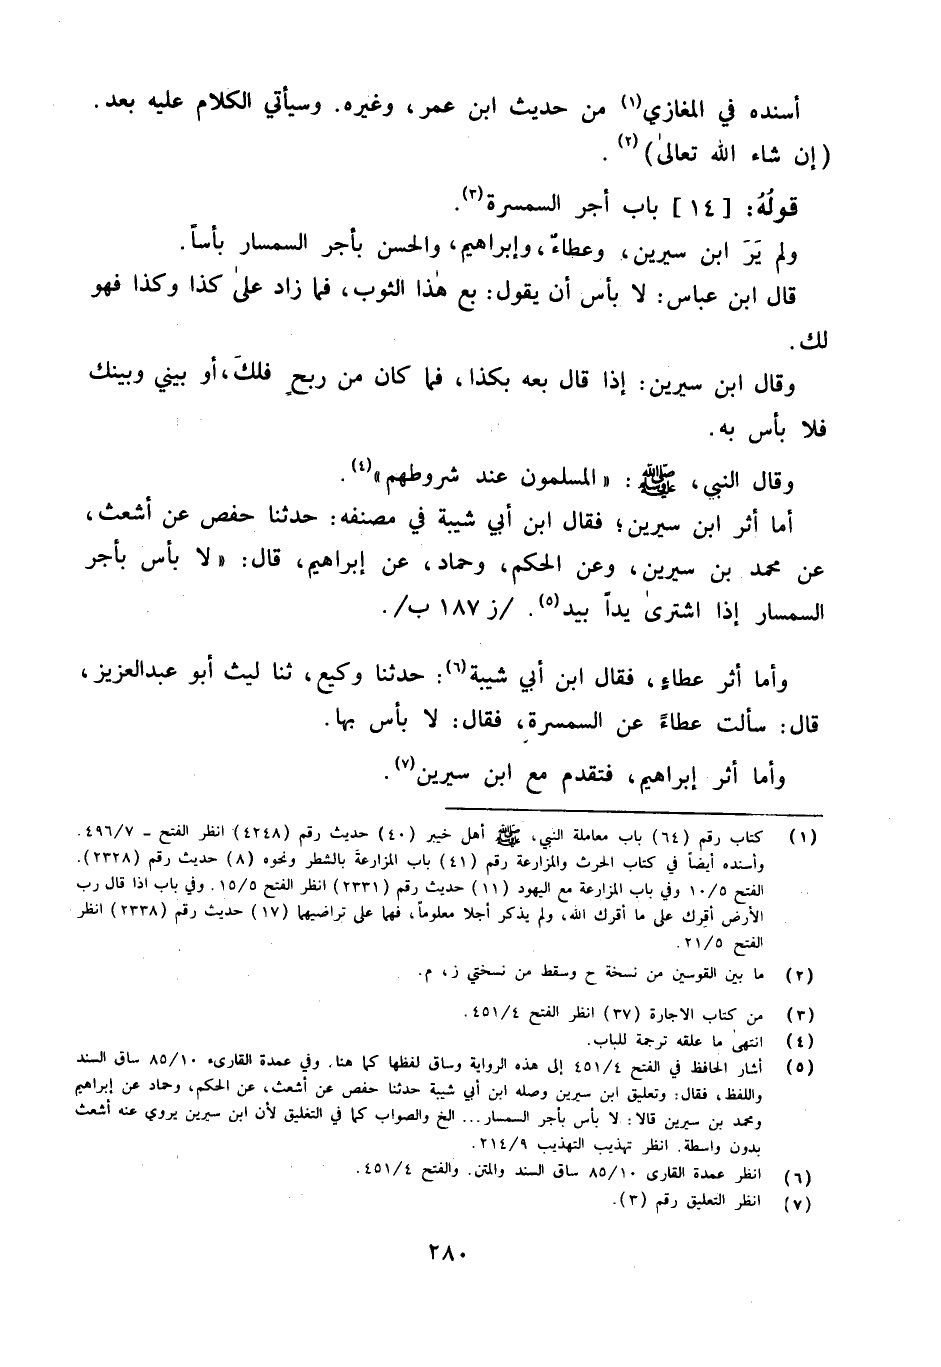 أسنده في المغازي(١) من حديث ابن عمر، وغيره. وسيأتي الكلام عليه بعد.
(إن شاء الله تعالىٰ)(٢).
قولُهُ: [١٤] باب أجر السمسرة(٣).
ولم يَرَ ابن سيرين، وعطاءٌ، وإبراهيم، والحسن بأجر السمسار بأساً.
قال ابن عباس: لا بأس أن يقول: بع هٰذا الثوب، فما زاد علىٰ كذا وكذا فهو
لك.
وقال ابن سيرين: إذا قال بعه بكذا، فما كان من ربحٍ فلكَ، أو بيني وبينك
فلا بأس به.
وقال النبي، ﷺ: «المسلمون عند شروطهم»(٤).
أما أثر ابن سيرين؛ فقال ابن أبي شيبة في مصنفه: حدثنا حفص عن أشعث،
عن محمد بن سيرين، وعن الحكم، وحماد، عن إبراهيم، قال: «لا بأس بأجر
السمسار إذا اشترىٰ يداً بيد(٥). /ز ١٨٧ ب/.
وأما أثر عطاءٍ، فقال ابن أبي شيبة(٦): حدثنا وكيع، ثنا ليث أبو عبدالعزيز،
قال: سألت عطاءً عن السمسرة، فقال: لا بأس بها.
وأما أثر إبراهيم، فتقدم مع ابن سيرين(٧).
(١) كتاب رقم (٦٤) باب معاملة النبي، ﷺ أهل خيبر (٤٠) حديث رقم (٤٢٤٨) انظر الفتح ـ ٤٩٦/٧.
وأسنده أيضاً في كتاب الحرث والمزارعة رقم (٤١) باب المزارعة بالشطر ونحوه (٨) حديث رقم (٢٣٢٨).
الفتح ١٠/٥ وفي باب المزارعة مع اليهود (١١) حديث رقم (٢٣٣١) انظر الفتح ١٥/٥. وفي باب اذا قال رب
الأرض أقرك على ما أقرك الله، ولم يذكر أجلا معلوماً، فهما على تراضيهما (١٧) حديث رقم (٢٣٣٨) انظر
الفتح ٢١/٥.
(٢) ما بين القوسين من نسخة ح وسقط من نسختي ز، م.
(٣) من كتاب الاجارة (٣٧) انظر الفتح ٤٥١/٤.
(٤) انتهىٰ ما علقه ترجمة للباب.
(٥) أشار الحافظ في الفتح ٤٥١/٤ إلى هذه الرواية وساق لفظها كما هنا. وفي عمدة القارىء ٨٥/١٠ ساق السند
واللفظ، فقال: وتعليق ابن سيرين وصله ابن أبي شيبة حدثنا حفص عن أشعث، عن الحكم، وحماد عن إبراهيم
ومحمد بن سيرين قالا: لا بأس بأجر السمسار... الخ والصواب كما في التغليق لأن ابن سيرين يروي عنه أشعث
بدون واسطة. انظر تهذيب التهذيب ٢١٤/٩.
(٦) انظر عمدة القارى ٨٥/١٠ ساق السند والمتن. والفتح ٤٥١/٤.
(٧) انظر التعليق رقم (٣).
٢٨٠